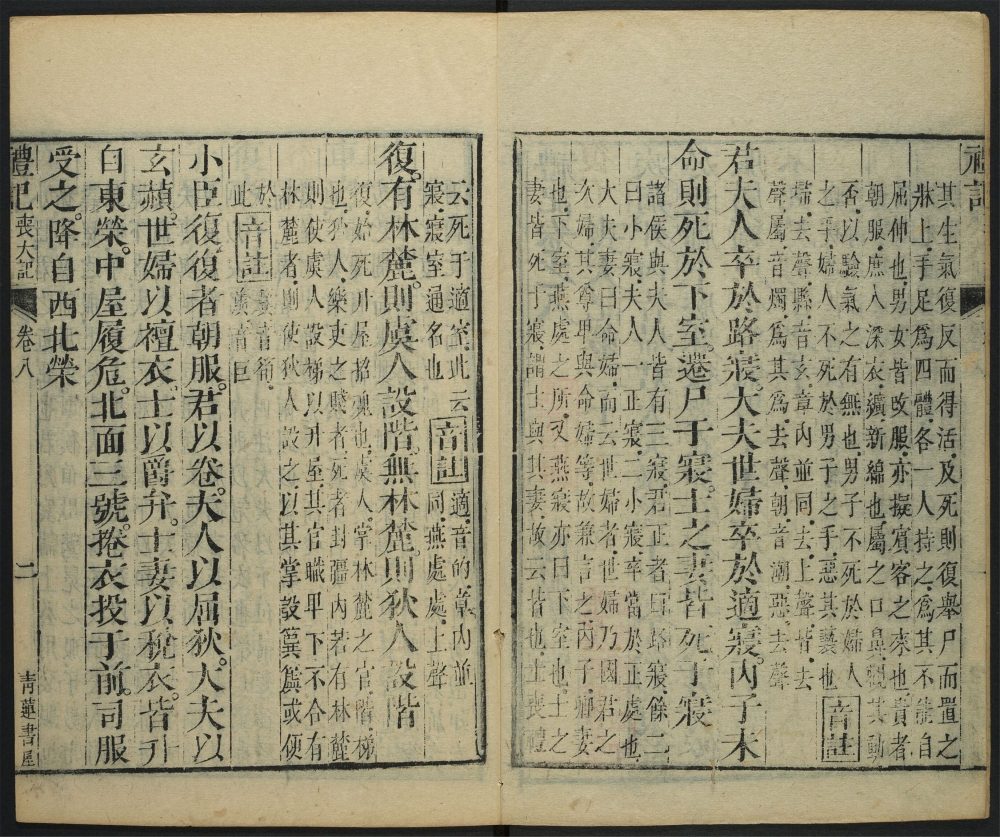 其生氣復反而得活及死則復舉尸而置之
牀上手足為四體各一人持之為其不能自
屈伸也男女皆改服亦擬賓客之來也貴者
朝服庶人深衣纊新綿也屬之口鼻觀其動
否以驗氣之有無也男子不死於婦人
之手婦人不死於男子之手惡其褻也 音註
墇去聲縣音玄章內並同去上聲皆去
聲屬音燭為其為去聲朝音潮惡去聲
君夫人卒於路寢大夫世婦卒於適寢內子未
命則死於下室遷尸于寢士之妻皆死于寢
諸侯與夫人皆有三寢君正者曰路寢餘二
曰小寢夫人一正寢二小寢卒當於正處也
大夫妻曰命婦而云世婦者世婦乃國君之
次婦其尊卑與命婦等故兼言之內子卿妻
也下室燕處之所又燕寢亦曰下室也士之
妻皆死于寢謂士與其妻故云皆也士喪禮
云死于適室此云 音註 適音的章內並
寢寢室通名也 同燕處處上聲
復有林麓則虞人設階無林麓則狄人設階
復始死升屋招魂也虞人掌林麓之官階梯
也狄人樂吏之賤者死者封疆內若有林麓
則使虞人設梯以升屋其官職卑下不合有
林麓者則使狄人設之以其掌設簨簴或便
於 音註 簨音筍
此 簴音巨
小臣復復者朝服君以卷夫人以屈狄大夫以
玄赬世婦以襢衣士以爵弁士妻以稅衣皆升
自東榮中屋履危北面三號捲衣投于前司服
受之降自西北榮
禮記 喪大記 卷八 二 青蓮書屋